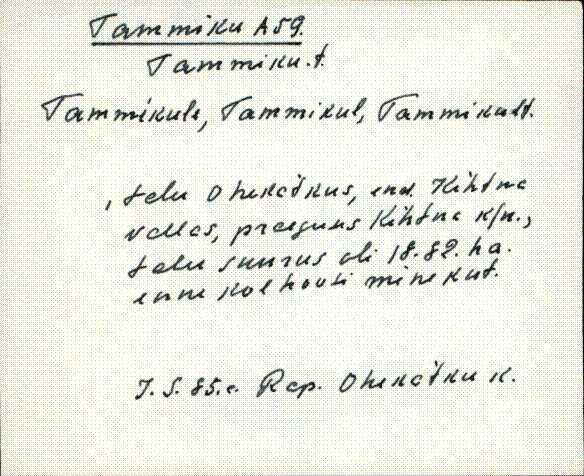 Tammiku A59.
Tammiku. t.
Tammikule, Tammikul, Tammikult.
, talu Ohekatkus, end. Kehtna
vallas, praegus Kehtna k/n.,
talu suurus oli 18.82. ha.
enne kolhoosi minekut.
J. S. 85. a. Rap. Ohekatku k.